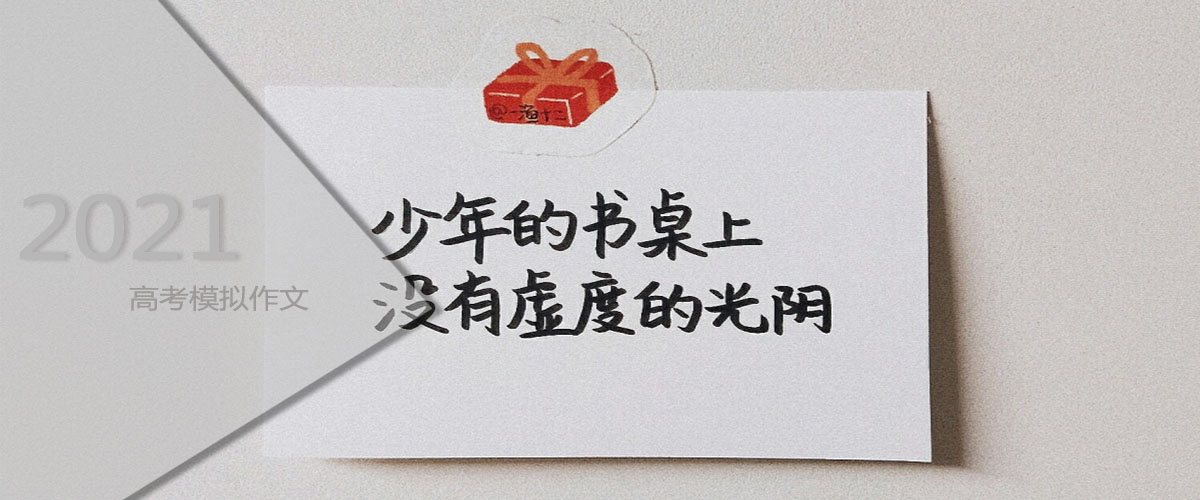 2021
高考模拟作文
@一渔十二
少年的书桌上
没有虚度的光阴